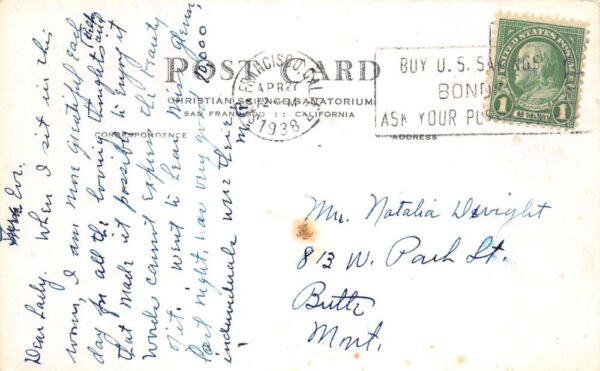 POST CARD
CHRISTIAN SCIENCE SANATORIUM
SAN FRANCISCO :: CALIFORNIA
CORRESPONDENCE
ADDRESS
SAN FRANCISCO, CAL.
APR 27
2 - PM
1938
BUY U.S. SAVINGS
BONDS
ASK YOUR PO
UNITED STATES POSTAGE
FRANKLIN
1 CENT 1
Eve.
Dear Lady. When I sit in this
room, I am more grateful each
day for all the loving thoughts and
help
that made it possible to enjoy it
words cannot express the beauty
of it. Went to hear Miss Glenn
last night, was very good 10,000
individuals were there
Natalia Dwight
813 W. Park St.
Butte
Mont.